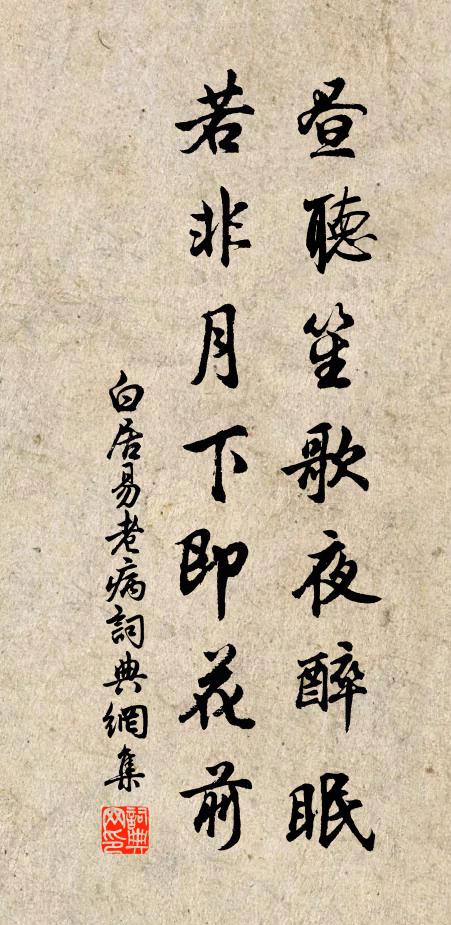 昼聽笙歌夜醉眠
若非月下即花前
白居易老病詞典網集
詞典网印